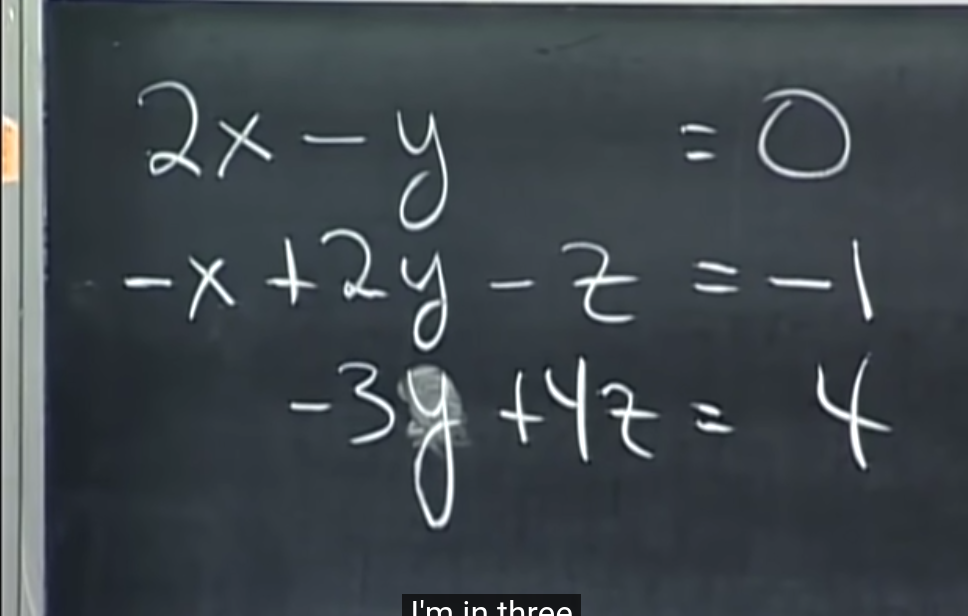 2x - y = 0
-x + 2y - z = -1
-3y + 4z = 4
I'm in three